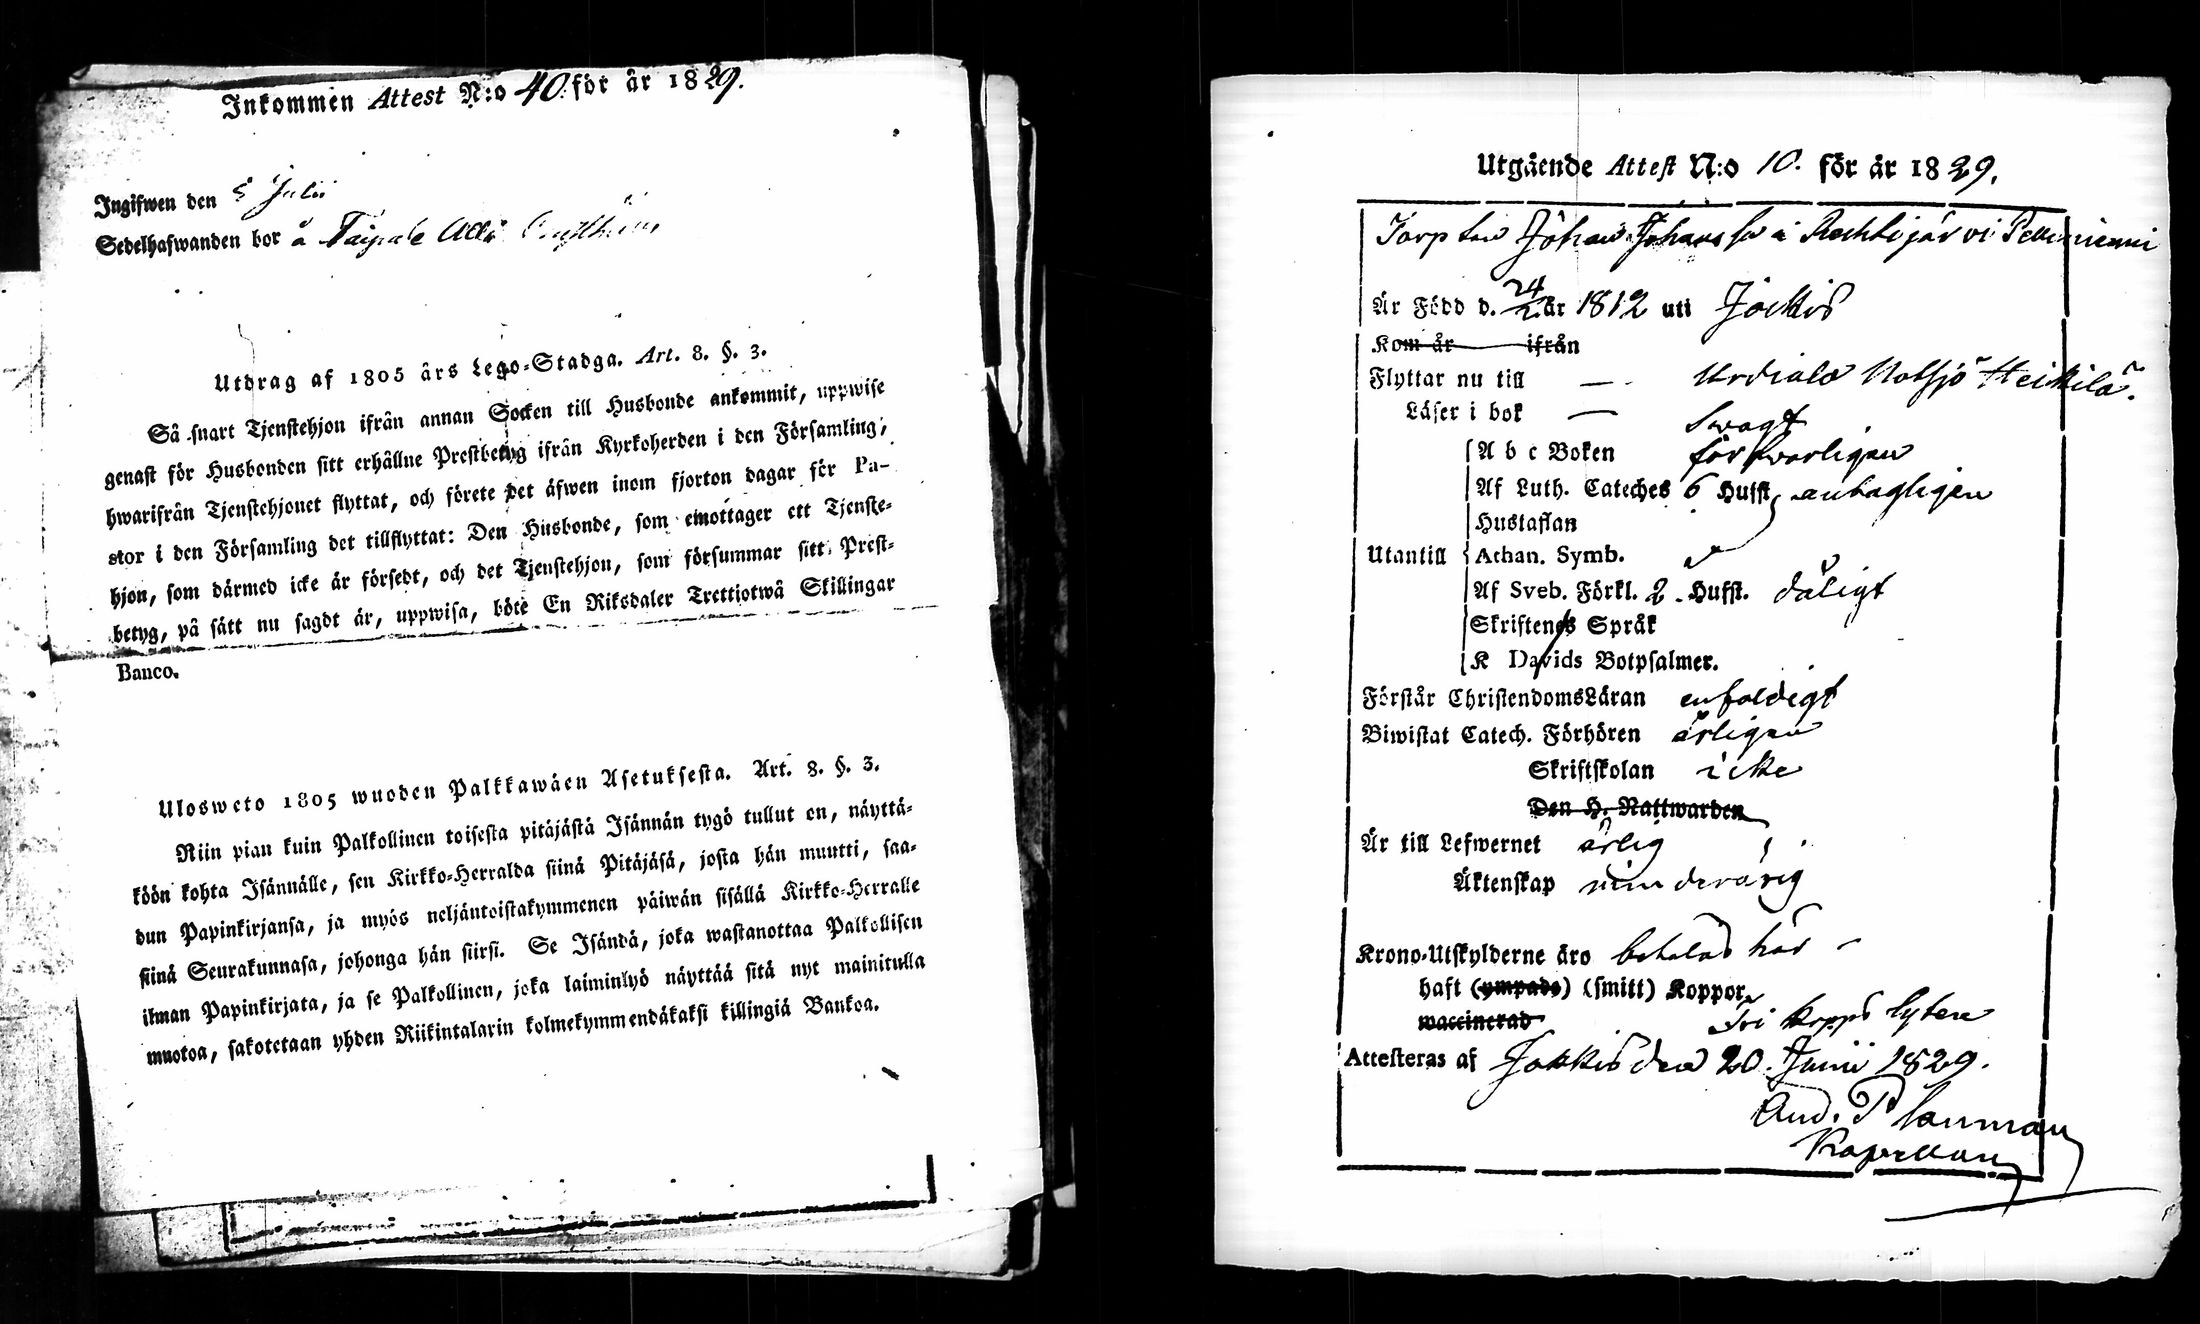 Inkommen Attest N:o 40. för år 1829.
Ingifwen den 5 Julii
Sedelhafwanden bor å Taipale
Utdrag af 1805 års Lego-Stadga. Art. 8. §. 3.
Så snart Tjenstehjon ifrån annan Socken till Husbonde ankommit, uppwise
genast för Husbonden sitt erhållne Prestbetyg ifrån Kyrkoherden i den Församling,
hwarifrån Tjenstehjonet flyttat, och förete det äfwen inom fjorton dagar för Pa-
stor i den Församling det tillflyttat: Den Husbonde, som emottager ett Tjenste-
hjon, som därmed icke är försedt, och det Tjenstehjon, som försummar sitt Prest-
betyg, på sätt nu sagdt är, uppwisa, böte En Riksdaler Trettiotwå Skillingar
Banco.
Ulosweto 1805 wuoden Palkkawäen Asetuksesta. Art. 8. §. 3.
Niin pian kuin Palkollinen toisesta pitäjästä Isännän tygö tullut on, näyttä-
köön kohta Isännälle, sen Kirkko-Herralda siinä Pitäjäsä, josta hän muutti, saa-
dun Papinkirjansa, ja myös neljäntoistakymmenen päiwän sisällä Kirkko-Herralle
siinä Seurakunnasa, johonga hän siirsi. Se Isändä, joka wastanottaa Palkollisen
ilman Papinkirjata, ja se Palkollinen, joka laiminlyö näyttää sitä nyt mainitulla
muotoa, sakotetaan yhden Riikintalarin kolmekymmendäkaksi killingiä Bankoa.
Utgående Attest N:o 10. för år 1829.
Johan Johansson i Rechtijärvi
Är Född d. 24/2 år 1812 uti Jockis
Kom år ifrån
Flyttar nu till — Urdiala Notsjö Heikkilä.
Läser i bok — Swagt
A b c Boken försvarligen
Af Luth. Cateches 6 Hufst. antagligen
Hustaflan
Utantill Athan. Symb.
Af Sveb. Förkl. 2 Hufst. dåligt
Skriftenes Språk
K Davids Botpsalmer.
Förstår ChristendomsLäran enfaldigt
Biwistat Catech. Förhören årligen
Skriftskolan icke
Den H. Nattwarden
Är till Lefwernet ärlig
Äktenskap minderårig
Krono-Utskylderne äro betalas här
haft (ympade) (smitt) Koppor
waccinerad
Attesteras af Jockis den 20. Junii 1829.
And. Planman
Kapellan